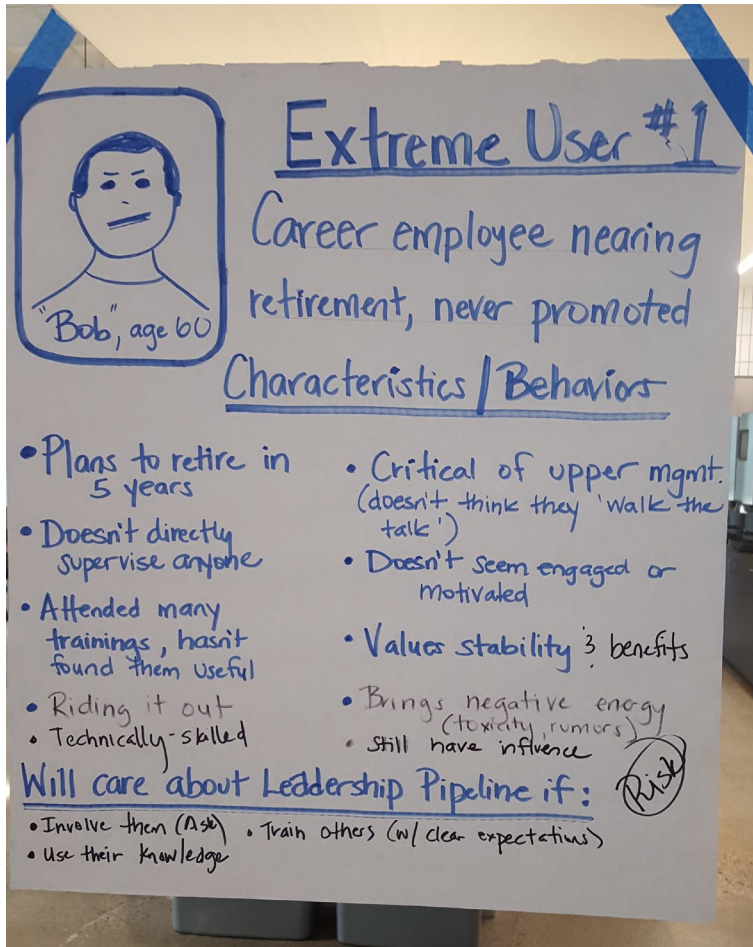 Extreme User #1
"Bob", age 60
Career employee nearing
retirement, never promoted
Characteristics/Behaviors
• Plans to retire in
5 years
• Doesn't directly
supervise anyone
• Attended many
trainings, hasn't
found them useful
• Riding it out
• Technically-skilled
• Critical of upper mgmt.
(doesn't think they 'walk the
talk')
• Doesn't seem engaged or
motivated
• Values stability & benefits
• Brings negative energy
(toxicity, rumors)
• Still have influence
Risk
Will care about Leddership Pipeline if:
• Involve them (Ask)
• Use their knowledge
• Train others (w/ clear expectations)